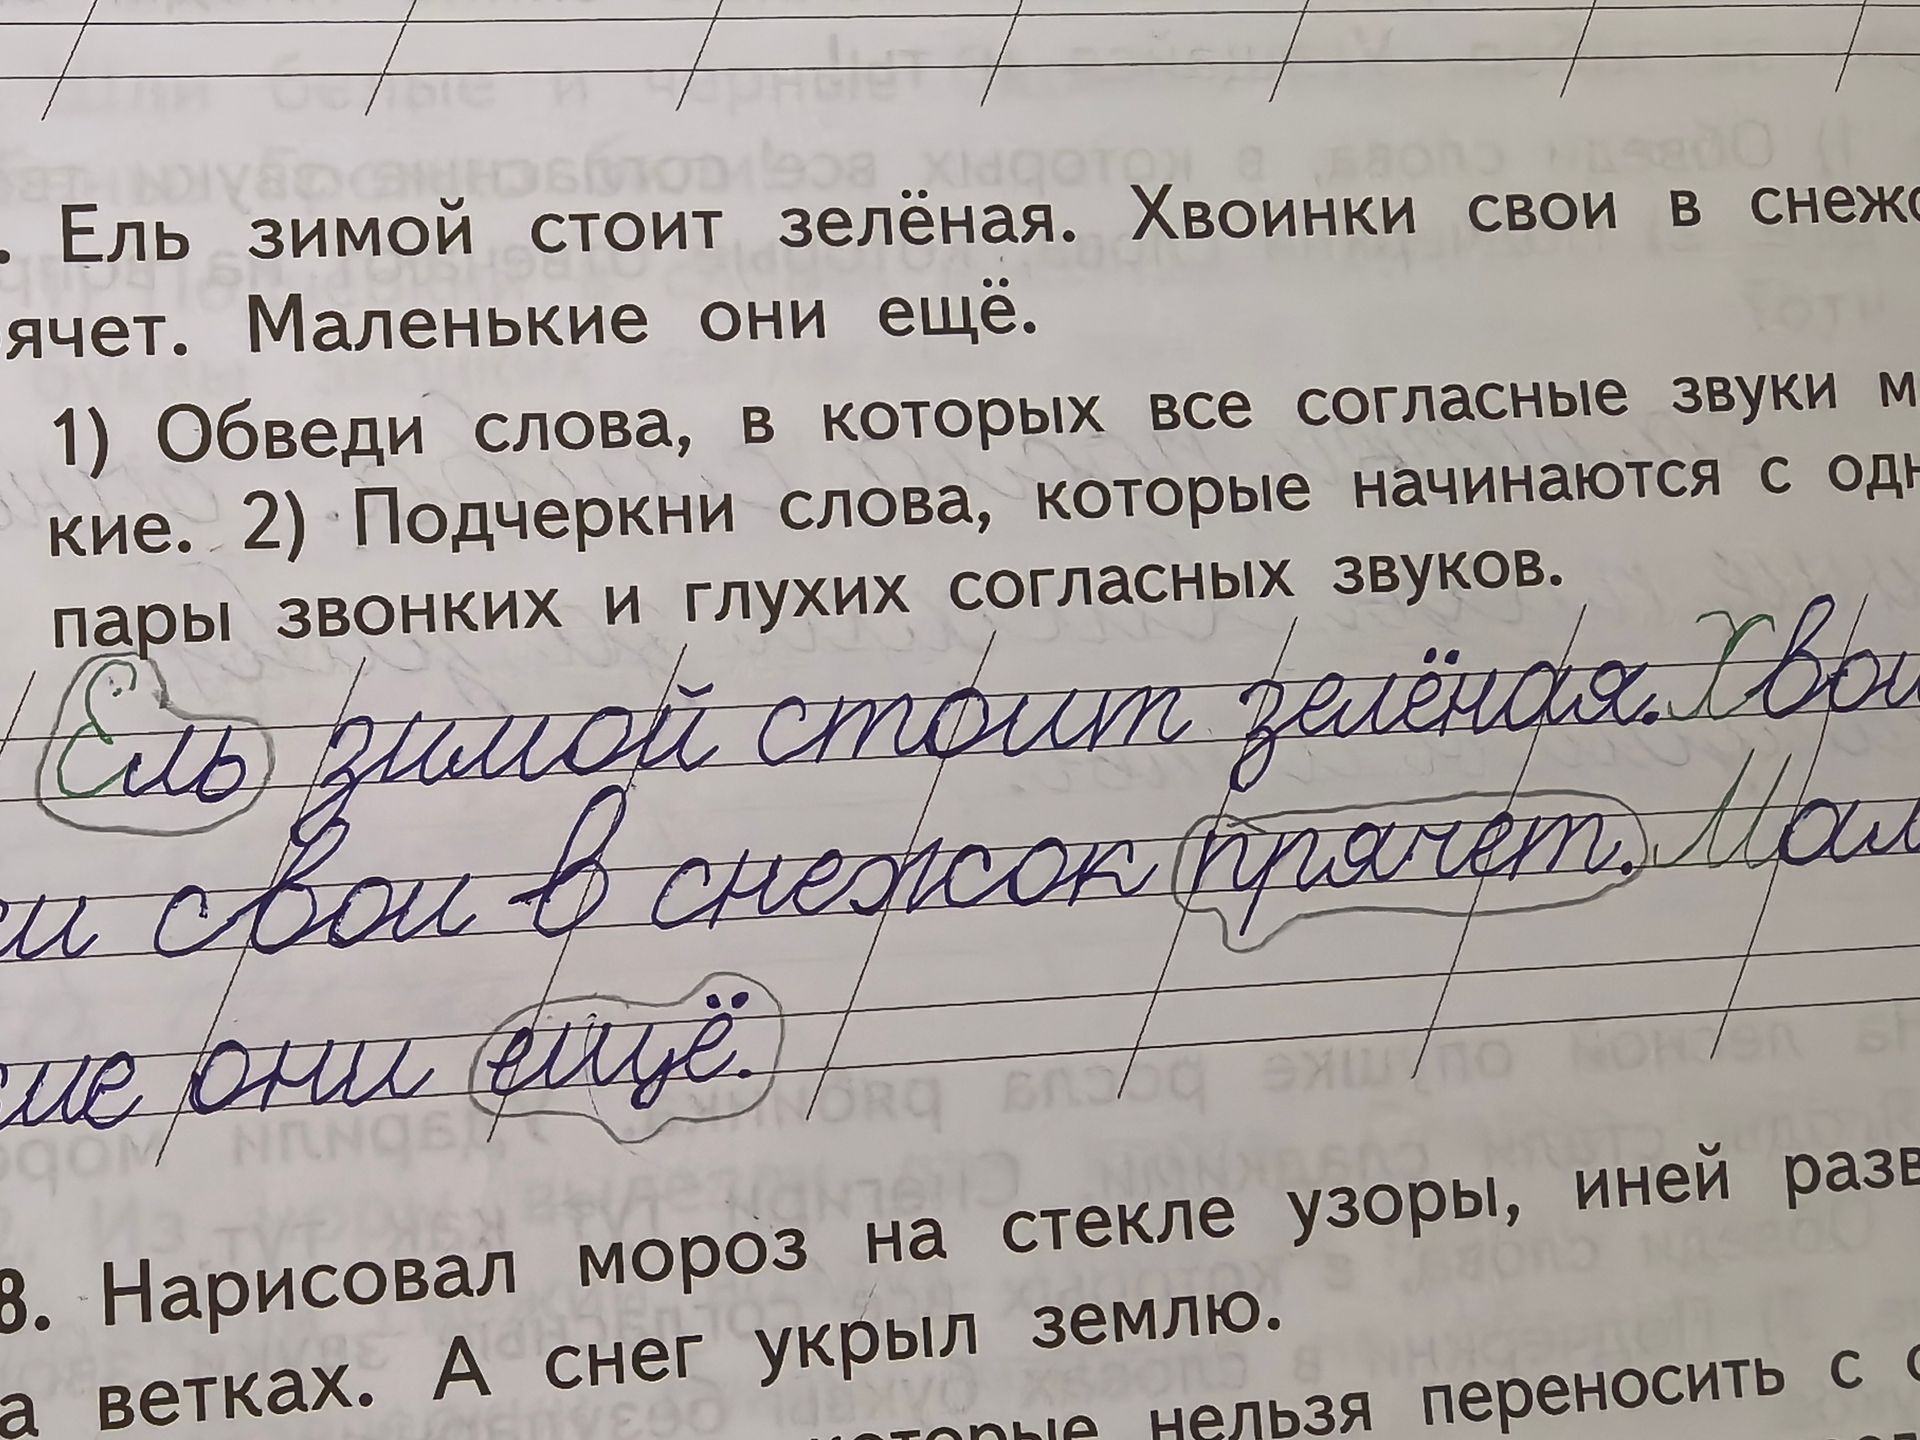 . Ель зимой стоит зелёная. Хвоинки свои в снежо
ячет. Маленькие они ещё.
1) Обведи слова, в которых все согласные звуки м
кие. 2) Подчеркни слова, которые начинаются с одн
пары звонких и глухих согласных звуков.
Ель зимой стоит зелёная. Хвои
ки свои в снежок прячет. Мал
кие они ещё.
8. Нарисовал мороз на стекле узоры, иней разв
а ветках. А снег укрыл землю.
которые нельзя переносить с